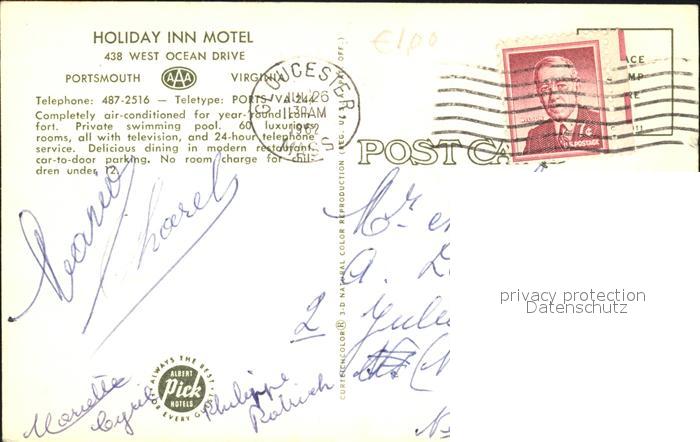 HOLIDAY INN MOTEL
438 WEST OCEAN DRIVE
PORTSMOUTH AAA VIRGINIA
Telephone: 487-2516 — Teletype: PORTS/VA 244
Completely air-conditioned for year-round com-
fort. Private swimming pool. 60 luxurious
rooms, all with television, and 24-hour telephone
service. Delicious dining in modern restaurant,
car-to-door parking. No room charge for chil-
dren under 12.
€1,00
GLOUCESTER
26
AM
7¢
POSTAGE
POST CA
CURTEICHCOLOR® 3-D NATURAL COLOR REPRODUCTION (REG. U.S. PAT. OFF.)
Karel
Mr
A.
2
privacy protection
Datenschutz
ALWAYS THE BEST
ALBERT
Pick
HOTELS
FOR EVERY GUEST
Mariette
Cyril
Philippe
Patrick